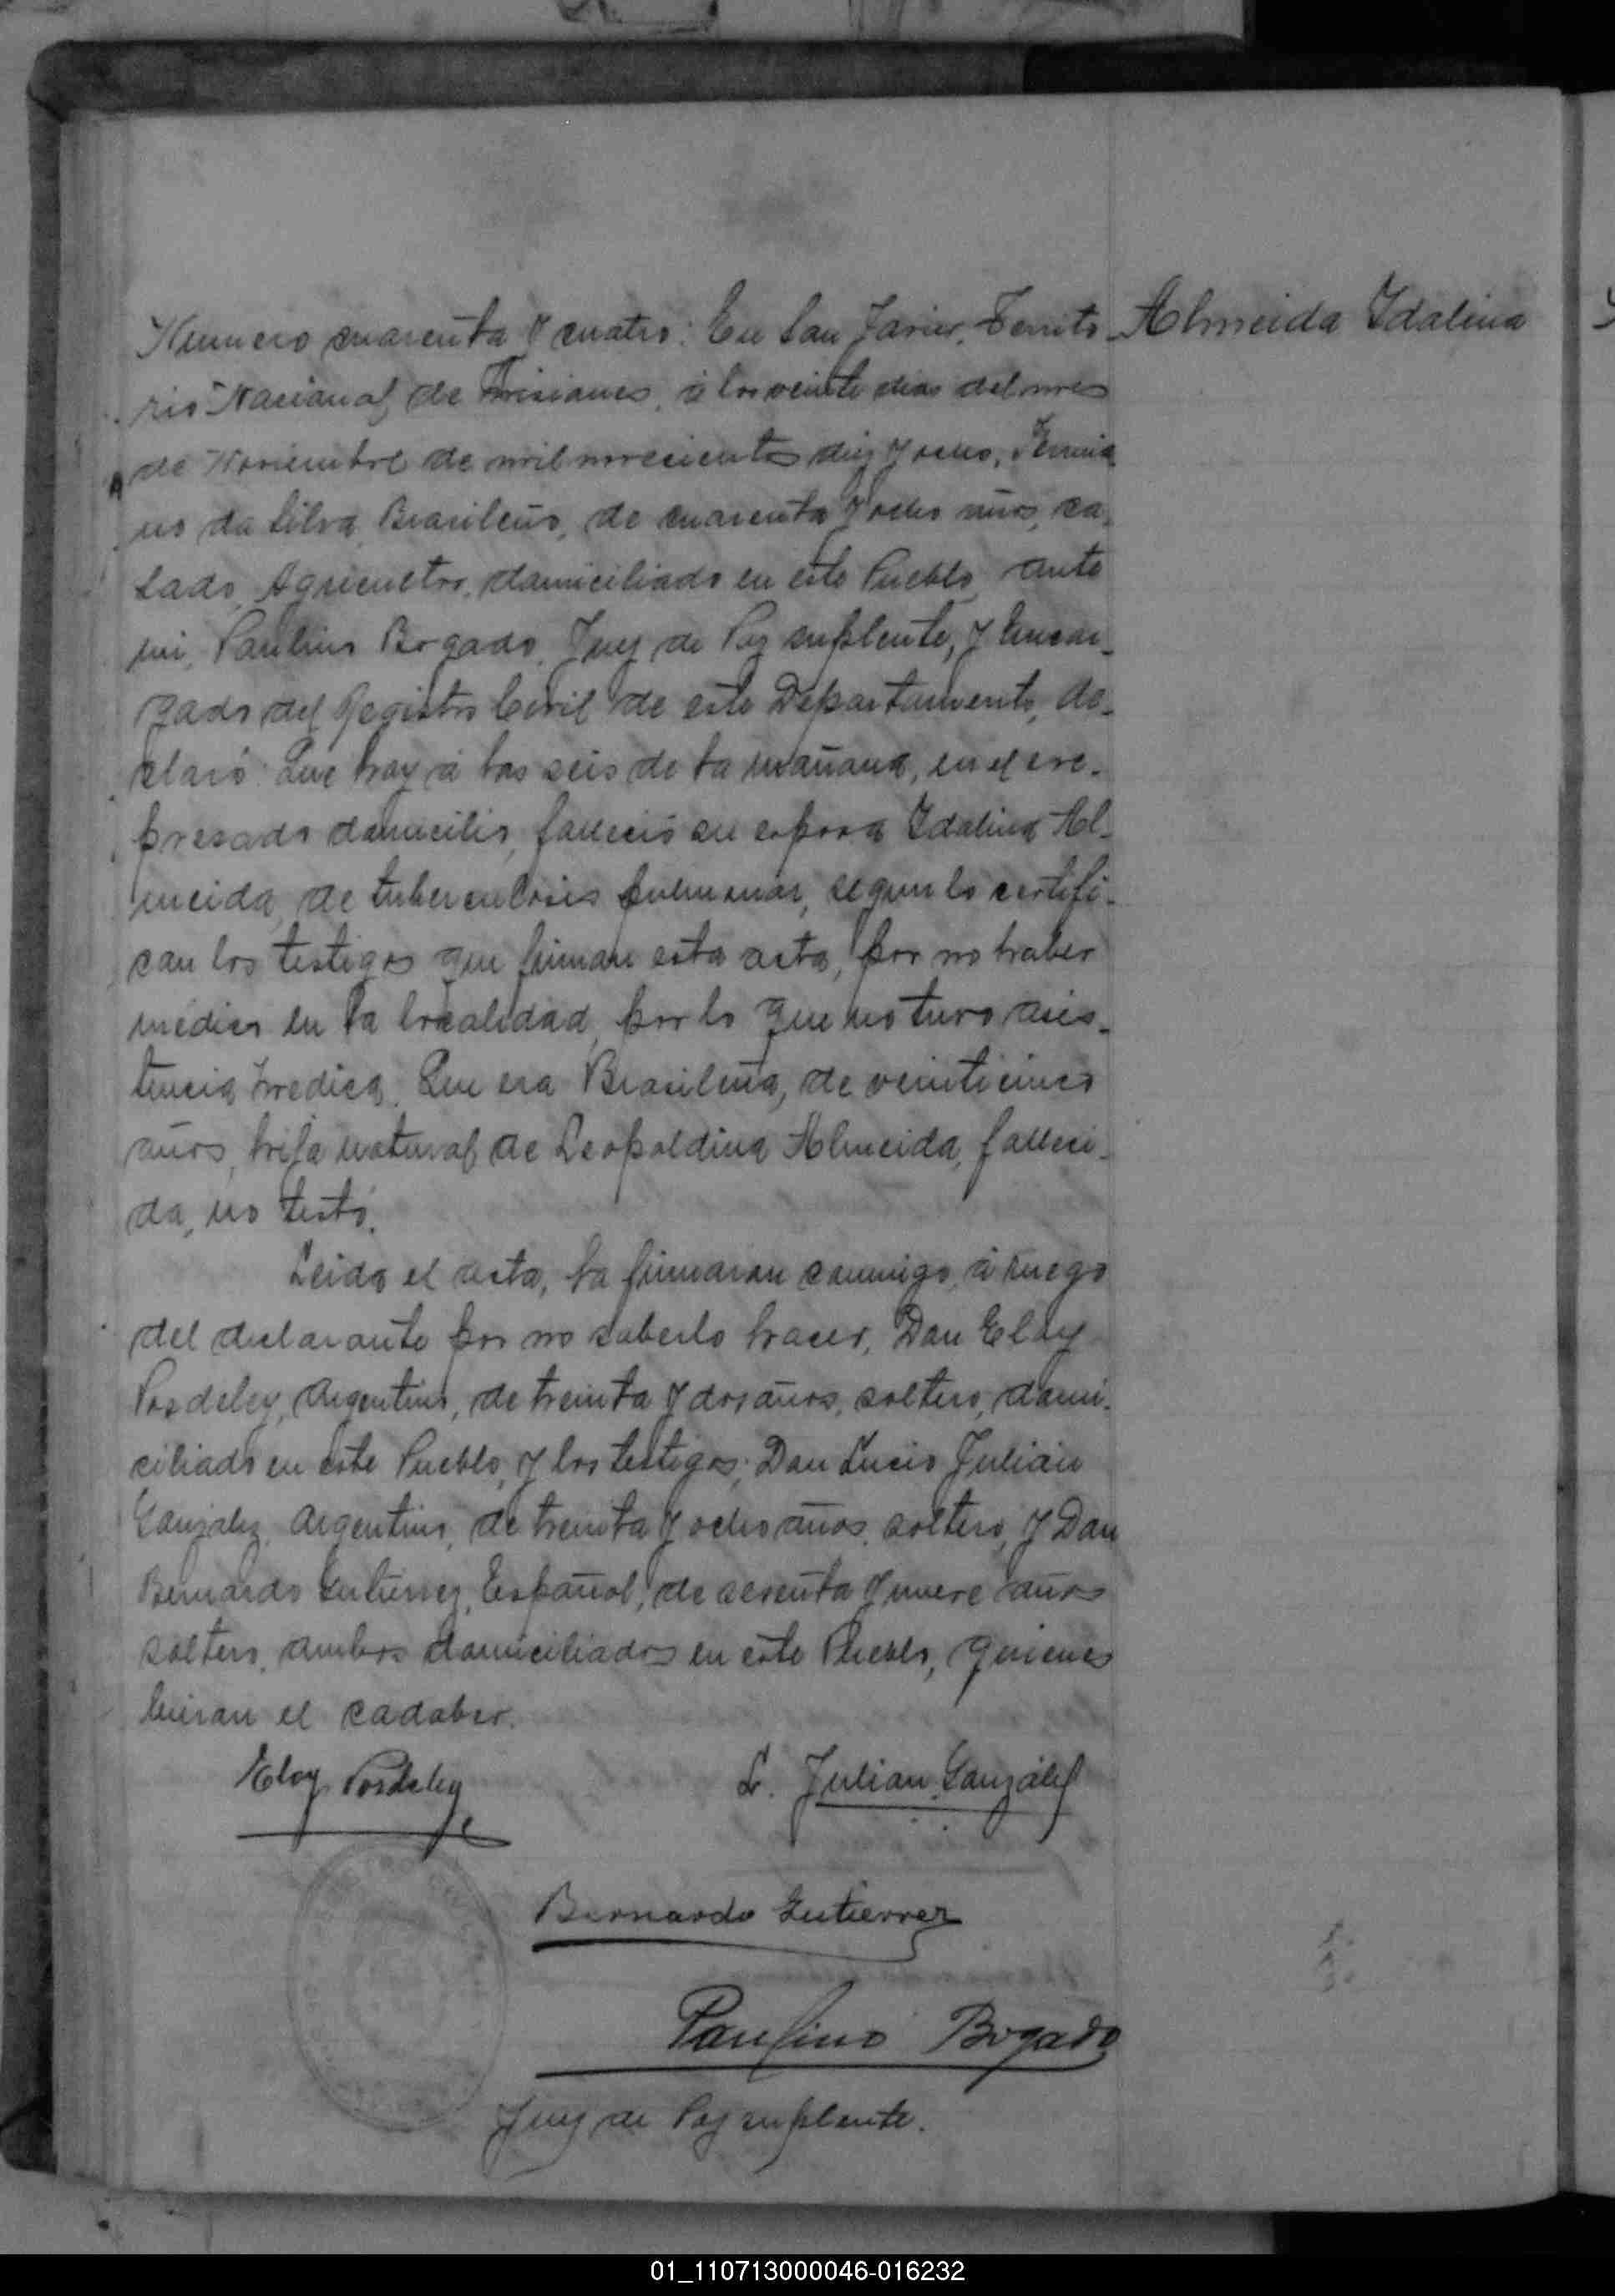 Numero cuarenta y cuatro: En San Javier, Territo-
Almeida Idalina
rio Nacional de Misiones, á los veinte dias del mes
de Noviembre de mil novecientos diez y ocho,
no da Silva, Brasileño, de cuarenta y ocho años, ca-
sado, Agricultor, domiciliado en este Pueblo, ante
mi, Paulino Bogado, Juez de Paz suplente, y Encar-
gado del Registro Civil de este Departamento, de-
claró: Que hoy á las seis de la mañana, en el ex-
presado domicilio, falleció su esposa Idalina Al-
meida, de tuberculosis pulmonar, segun lo certifi-
can los testigos que firman esta acta, por no haber
medico en la localidad, por lo que no tuvo asis-
tencia medica. Que era Brasileña, de veinticinco
años, hija natural de Leopoldina Almeida, falleci-
da, no testó.
Leida el acta, la firmaron conmigo, á ruego
del declarante por no saberlo hacer, Don Eloy
Posdeley, Argentino, de treinta y dos años, soltero, domi-
ciliado en este Pueblo, y los testigos, Don Lucio Julián
González, Argentino, de treinta y ocho años, soltero, y Don
Bernardo Gutierrez, Español, de sesenta y nueve años
soltero, ambos domiciliados en este Pueblo, quienes
bieron el cadaber.
Eloy Posdeley
L. Julian González
Bernardo Gutierrez
Paulino Bogado
Juez de Paz suplente.
01_110713000046-016232